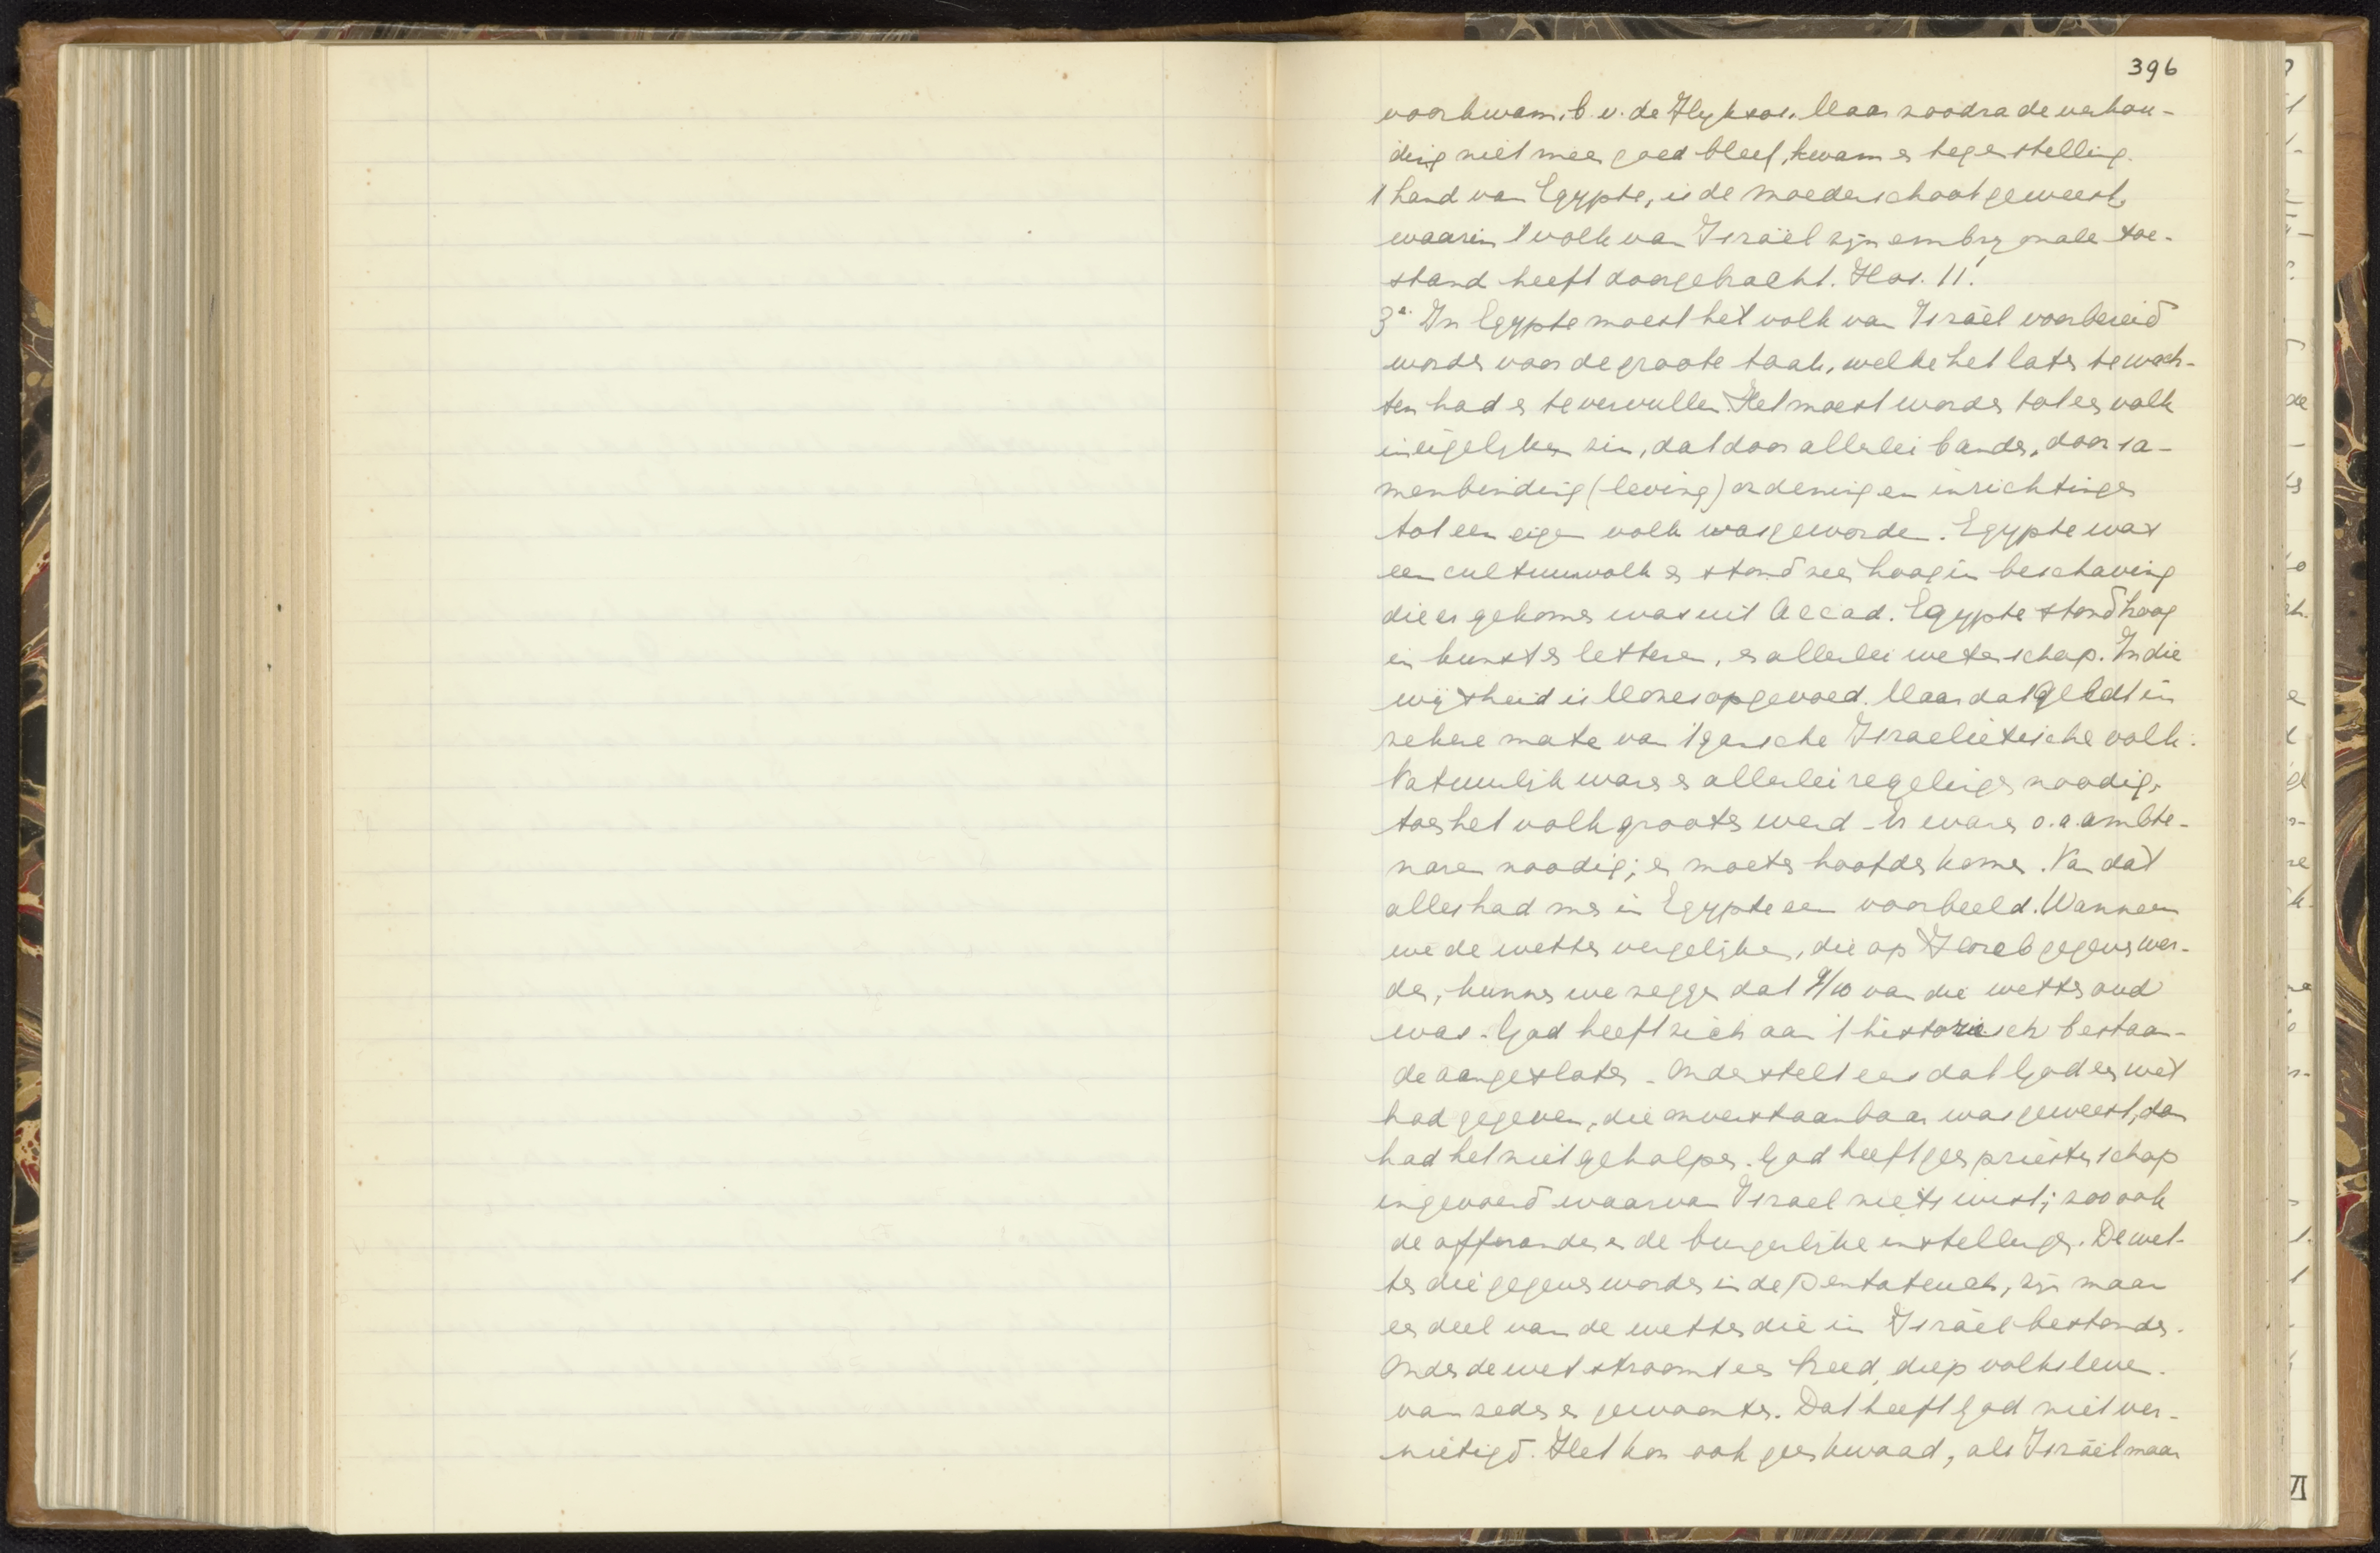 396
voorkwam. b.v. de Hyksos. Maar zoodra de verhou-
ding niet meer goed bleef, kwam er tegenstelling.
't land van Egypte, is de moederschoot geweest,
waarin 't volk van Israël zijn embryonale toe-
stand heeft doorgebracht. Hos. 11¹.
3e. In Egypte moest het volk van Israël voorbereid
worden voor de groote taak, welke het later te wach-
ten had en te vervullen. Het moest worden tot een volk
in eigelijken zin, dat door allerlei banden, door sa-
menbinding (leving) ordening en inrichtingen
tot een eigen volk was geworden. Egypte was
een cultuurvolk en stond zeer hoog in beschaving
die er gekomen was uit Accad. Egypte stond hoog
in kunst en letteren, en allerlei wetenschap. In die
wijsheid is Mozes opgevoed. Maar dat geldt in
zekere mate van 't gansche Israelietische volk.
Natuurlijk waren er allerlei regelingen noodig,
toen het volk grooter werd. Er waren o.a. ambte-
naren noodig; er moeten hoofden komen. Van dat
alles had men in Egypte een voorbeeld. Wanneer
we de wetten vergelijken, die op Horeb gegeven wer-
den, kunnen we zeggen dat 9/10 van die wetten oud
was. God heeft zich aan 't historisch bestaan-
de aangesloten. Onderstelt eens dat God een wet
had gegeven, die onverstaanbaar was geweest, dan
had het niet geholpen. God heeft geen priesterschap
ingevoerd waarvan Israel niets wist; zoo ook
de offeranden en de burgerlijke instellingen. De wet-
ten die gegeven worden in de Pentateuch, zijn maar
een deel van de wetten die in Israël bestonden.
Onder de wet stroomt een breed, diep volksleven.
van zeden en gewoonten. Dat heeft God niet ver-
nietigd. Het kon ook geen kwaad, als Israël maar
VI